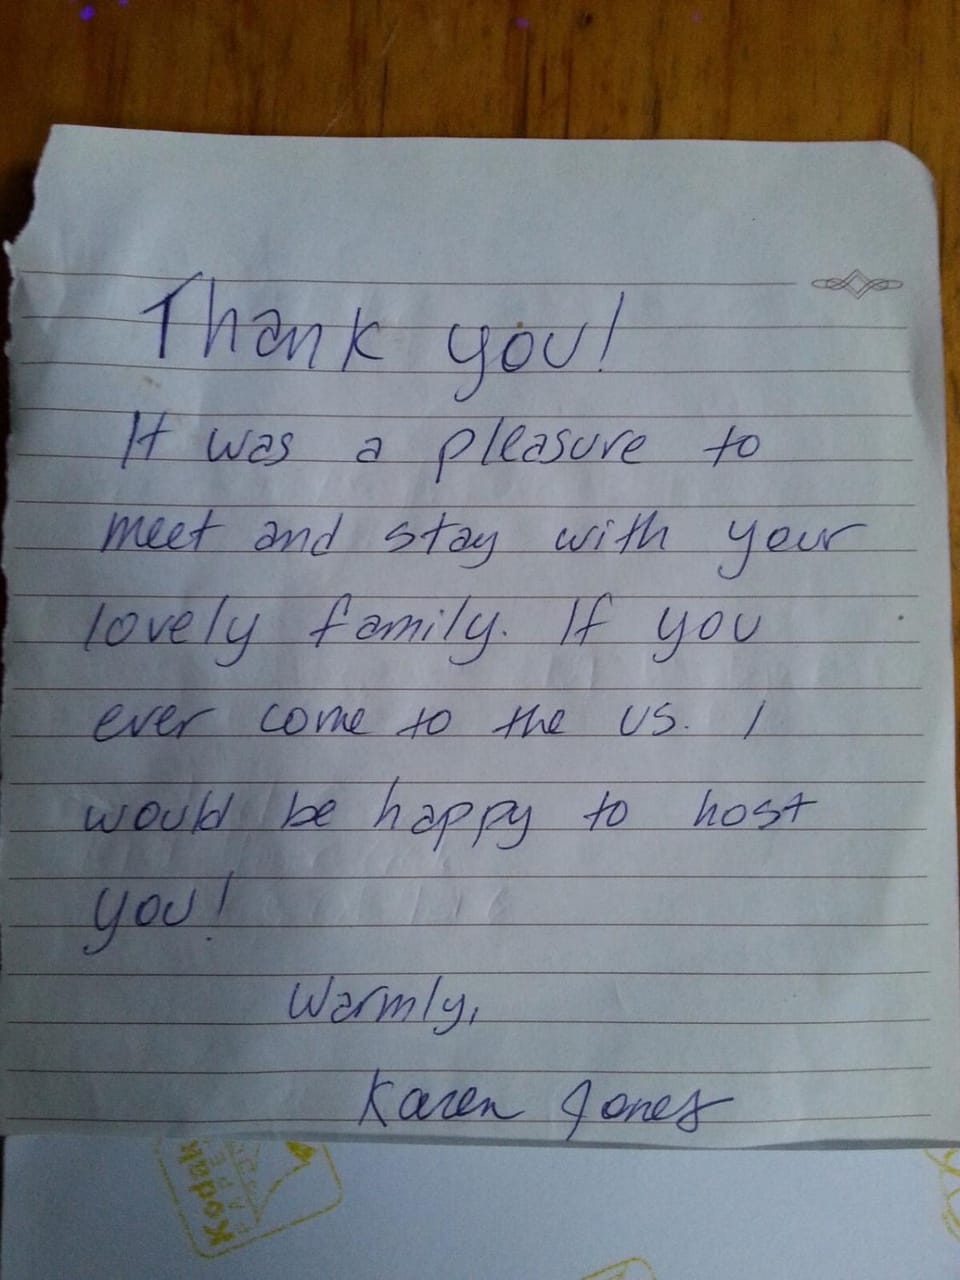 Thank you!
It was a pleasure to
meet and stay with your
lovely family. If you
ever come to the US. I
would be happy to host
you!
Warmly,
Karen Jones
Kodak